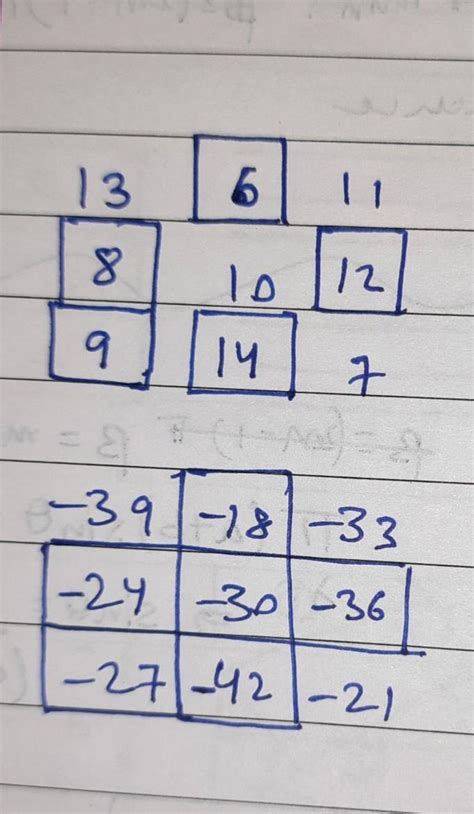 13 6 11
8 10 12
9 14 7
-39 -18 -33
-24 -30 -36
-27 -42 -21